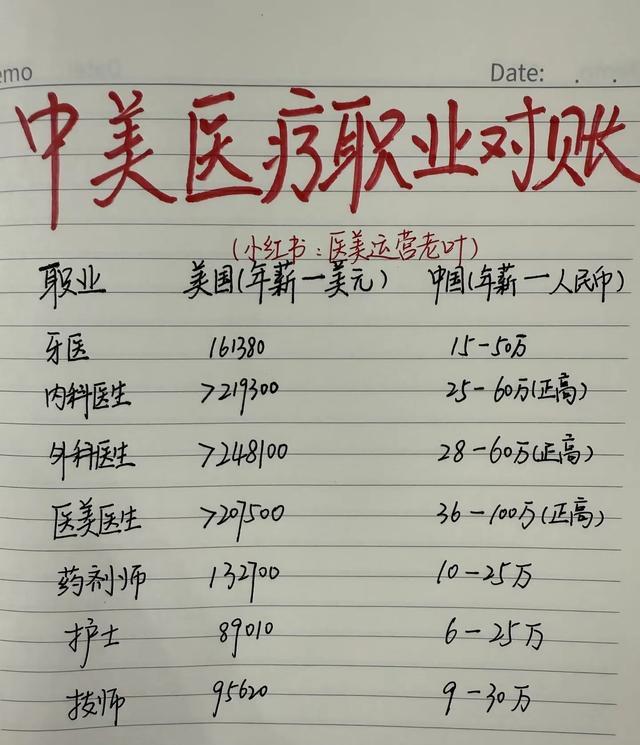 emo Date: . .
中美医疗职业对账
(小红书:医美运营老叶)
职业 美国(年薪一美元) 中国(年薪一人民币)
牙医 161380 15-50万
内科医生 >219300 25-60万(正高)
外科医生 >248100 28-60万(正高)
医美医生 >207500 36-100万(正高)
药剂师 132700 10-25万
护士 89010 6-25万
技师 95620 9-30万